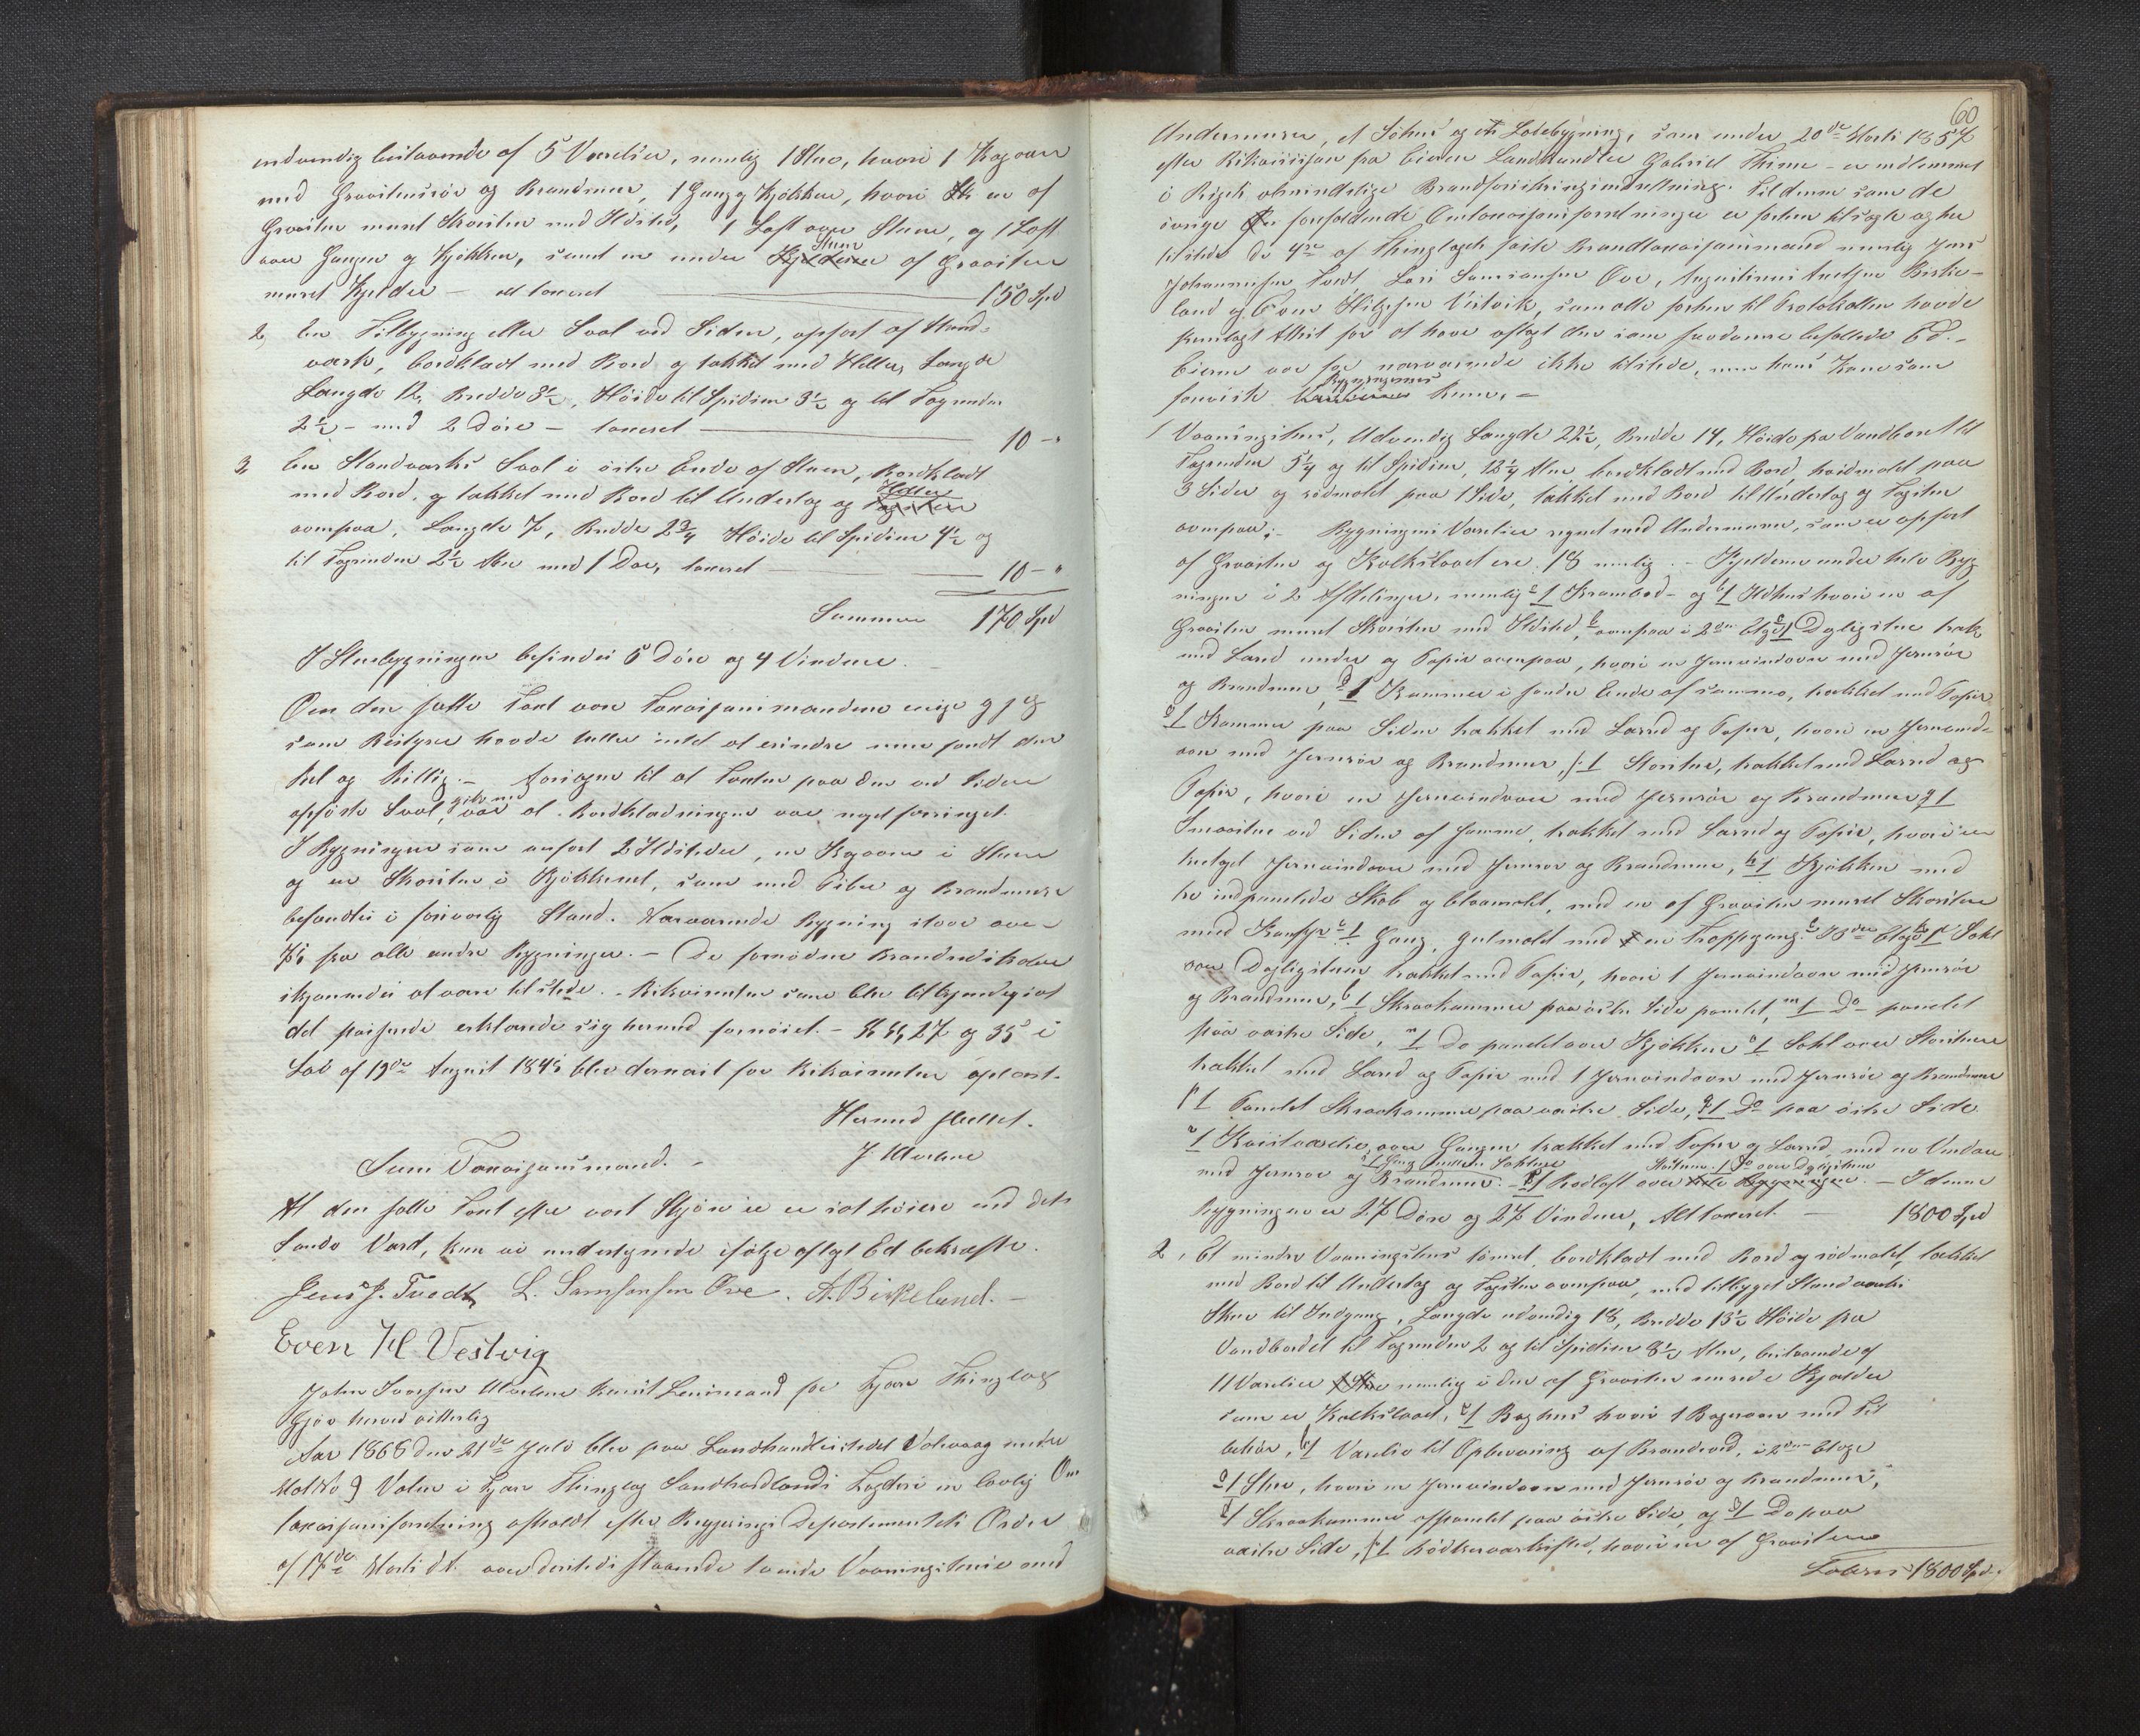 indvendig bestaaende af 5 Værelser, nemlig 1 Stue, hvori 1 Kagovn
med Graasteensrör og Brandmuur, 1 Gang og Kjökken, hvori er af
Graasteen muret Skorsten med Ildsted, 1 Loft over Stuen, og 1 Loft
over Gangen og Kjökken, samt en under Stuen af Graasteen
muret Kjelder — alt taxeret 150 Spd
2, En Tilbygning eller Sval ved Siden, opfört af Stand-
værk, bordklædt med Bord og takket med Heller, Længde
Længde 12, Bredde 3½, Höide til Spidsen 3½ og til Tagrenden
2½ – med 2 Döre – taxeret 10 – "
3, En Standværks Sval i östre Ende af Stuen, Bordklædt
med Bord, og takket med Bord til Undertag og Heller
ovenpaa, Længde 7, Bredde 2¾ Höide til Spidsen 4½ og
til Tagrenden 2½ Alen med 1 Dör, taxeret 10 – "
Summa 170 Spd
I Stuebygningen befindes 5 Döre og 4 Vinduer.
Om den satte Taxt vare Taxationsmændene enige og jeg
som Bestyrer havde heller intet at erindre men fandt den
ret og billig. – Aarsagen til at Taxten paa den ved Siden
opförte Sval, var at Bordklædningen var noget forringet.
I Bygningen som anfört 2 Ildsteder, en Kagovn i Stuen
og en Skorsten i Kjökkenet, som med Piber og Brandmure
befandtes i forsvarlig Stand. Nærværende Bygning staar
fra alle andre Bygninger. – De fornödne Brandredskaber
skjönnedes at være tilstede. – Rekvirenten som blev tilkjendegivet
det passerede erklærede sig hermed fornöiet. – §§ 27 og 35 i
Lov af 19de August 1845 blev dernæst for Rekvirenten oplæst.
Hermed sluttet.
J. Mælen
Som Taxationsmænd. –
At den satte Taxt efter vort Skjön er ei sat höiere end dets
sande Værd, kan vi undertegnede ifölge aflagt Ed bekræfte.
Jens J. Tvedt, L. Samsonsen Öve. A. Birkeland. –
Even H Vestvig
John Iversen Mælen Konst Lensmand for Fjære Thinglag
Gjör herved vitterlig
Aar 1868 den 21de Juli blev paa Landhandlerstedet Valevaag under
Mat No 9 Valen i Fjære Thinglag Söndhordlands Fogderi en lovlig Om
taxationsforretning afholdt efter Regjerings Departementets Ordre
af 17de Marts d.A. over dersteds staaende tvende Vaaningshuse med
60
Undermurer, et Söhuus og en Ladebygning, som under 20de Marts 1857
efter Rekvisition fra Eieren Landhandler Gabriel Thime – er indlemmet
i Rigets almindelige Brandforsikringsindretning. Til denne som de
övrige forefaldende Omtaxationsforretninger er forhen tilsagte og her
tilstede de 4re af Thinglagets faste Brandtaxationsmænd nemlig Jens
Johannessen Tvedt, Lars Samsonsen Ove, Augustinus Birke-
land og Even Helgesen Vestvik, som alle forhen til Protokollen havde
fremlagt Attest for at have aflagt den som saadanne befalede Ed. –
Eieren var for nærværende ikke tilstede, men hans Kone som
foreviste Bygningerne kun. –
1 Vaaningshus, Udvendig Længde 22½, Bredde 14, Höide fra Vandbret til
Tagrenden 5¼ og til Spidsen, 12¼ Alen bordklædt med Bord, hvidmalet paa
3 Sider og rödmalet paa 1 Side, takket med Bord til Undertag og Tagsten
ovenpaa; – Bygningens Værelser regnet med Undermuren, som er opfört
af Graasteen og Kalkslaaet ere 18 nemlig. – Kjelderen under hele Byg
ningen i 2 Afdelinger, nemlig a 1 Krambod – og b 1 Ildhus hvori er af
Graasten muret Skorsten med Ildsted, ovenpaa i 2den Etage c 1 Dagligstue trak
med Lærred under og Papir ovenpaa, hvori en Jernvindovn med Jernrör
og Brandmur, d 1 Kammer i söndre Ende af samme, trækket med Papir
e 1 Kammer paa Siden trækket med Lærred og Papir, hvori en Jernvind-
ovn med Jernrör og Brandmur, f 1 Storstue, trækket med Lærred og
Papir, hvori en Jernvindovn med Jernrör og Brandmur g 1
Smaastue ved Siden af samme, trækket med Lærred og Papir, hvori en
Jernvindovn med Jernrör og Brandmur, h 1 Kjökken med
to indpanelede Skab og blaamalet, med en af Graasten muret Skorsten
med i 1 Gang, gulmalet med en Trappegang. 3die Etage k 1 Sahl
over Dagligstuen trækket med Papir, hvori 1 Jernvindovn med Jernrör
og Brandmur, l 1 Skraakammer paa östre Side panelet, m 1 Do panelet
paa vestre Side, n 1 Do panelet over Kjökken o 1 Sahl over Storstuen
trækket med Lærred og Papir med 1 Jernvindovn med Jernrör og Brandmur
p 1 Panelet Skraakammer paa vestre Side, q 1 Do paa östre Side
r 1 Kvistværelse over Gangen trækket med Papir og Lærred, med en Vindovn
s 1 Gang mellem Sahlene Storstuen 1 Do over Dagligstuen
med Jernrör og Brandmur. – 1 Mörkloft over – I denne
Bygningen er 27 Döre og 27 Vinduer, Alt taxeret – 1800 Spd
2, Et mindre Vaaningshus tömret, bordklædt med Bord og rödmalet, takket
med Bord til Undertag og Tagsten ovenpaa, med tilbygget Standværks
Skur til Indgang, Længde udvendig 18, Bredde 13½ Höide fra
Vandbordet til Tagrenden 2 og til Spidsen 8½ Alen, bestaaende af
11 Værelser nemlig i den af Graasten murede Kjelder
som er Kalkslaaet, a 1 Baghus hvori 1 Bagerovn med Til
behör, b 1 Værelse til Opbevaring af Brændeved, i 2den Etage
c 1 Stue, hvori en Jernvindovn med Jernrör og Brandmur,
d 1 Skraakammer afpanelet paa östre Side, og e 1 Do paa
vestre Side, f 1 Bödkerværksted, hvori er af Graasten
Lateris 1800 Spd.